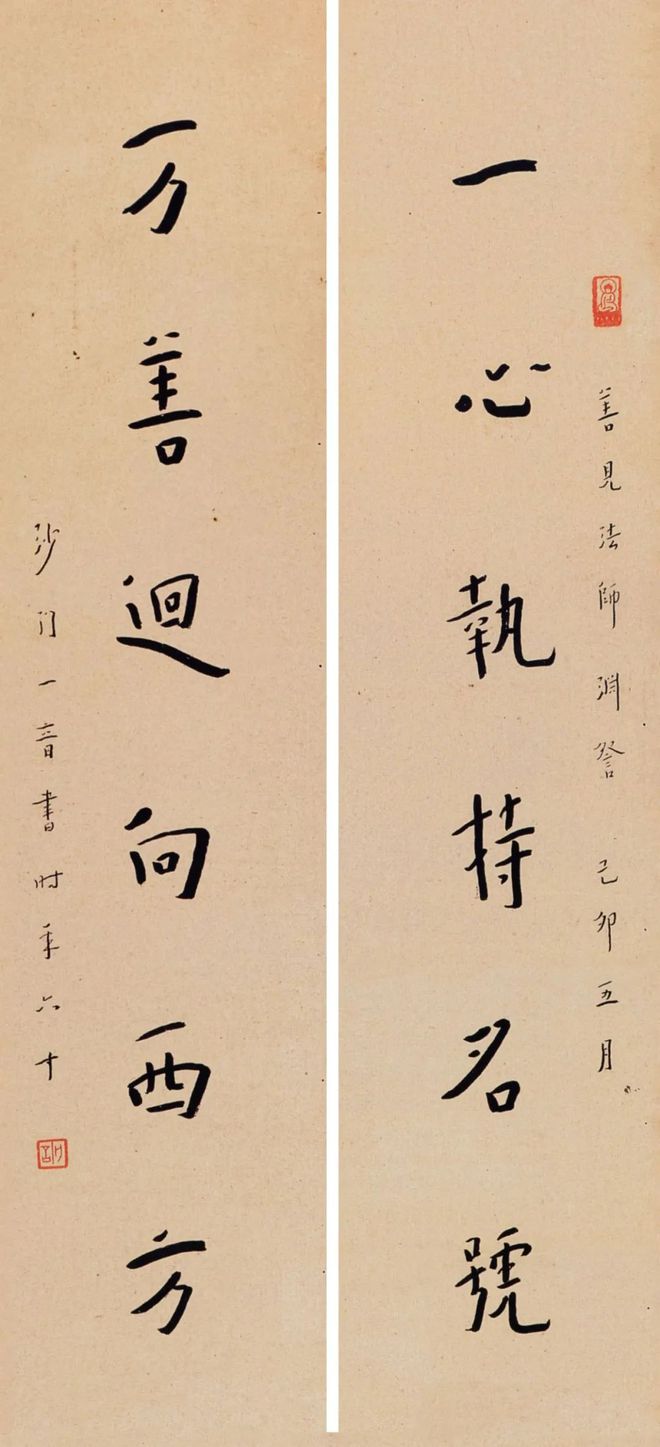 善見法師淵詧 己卯五月
一心執持名號
万善迴向西方
沙门一音書时年六十